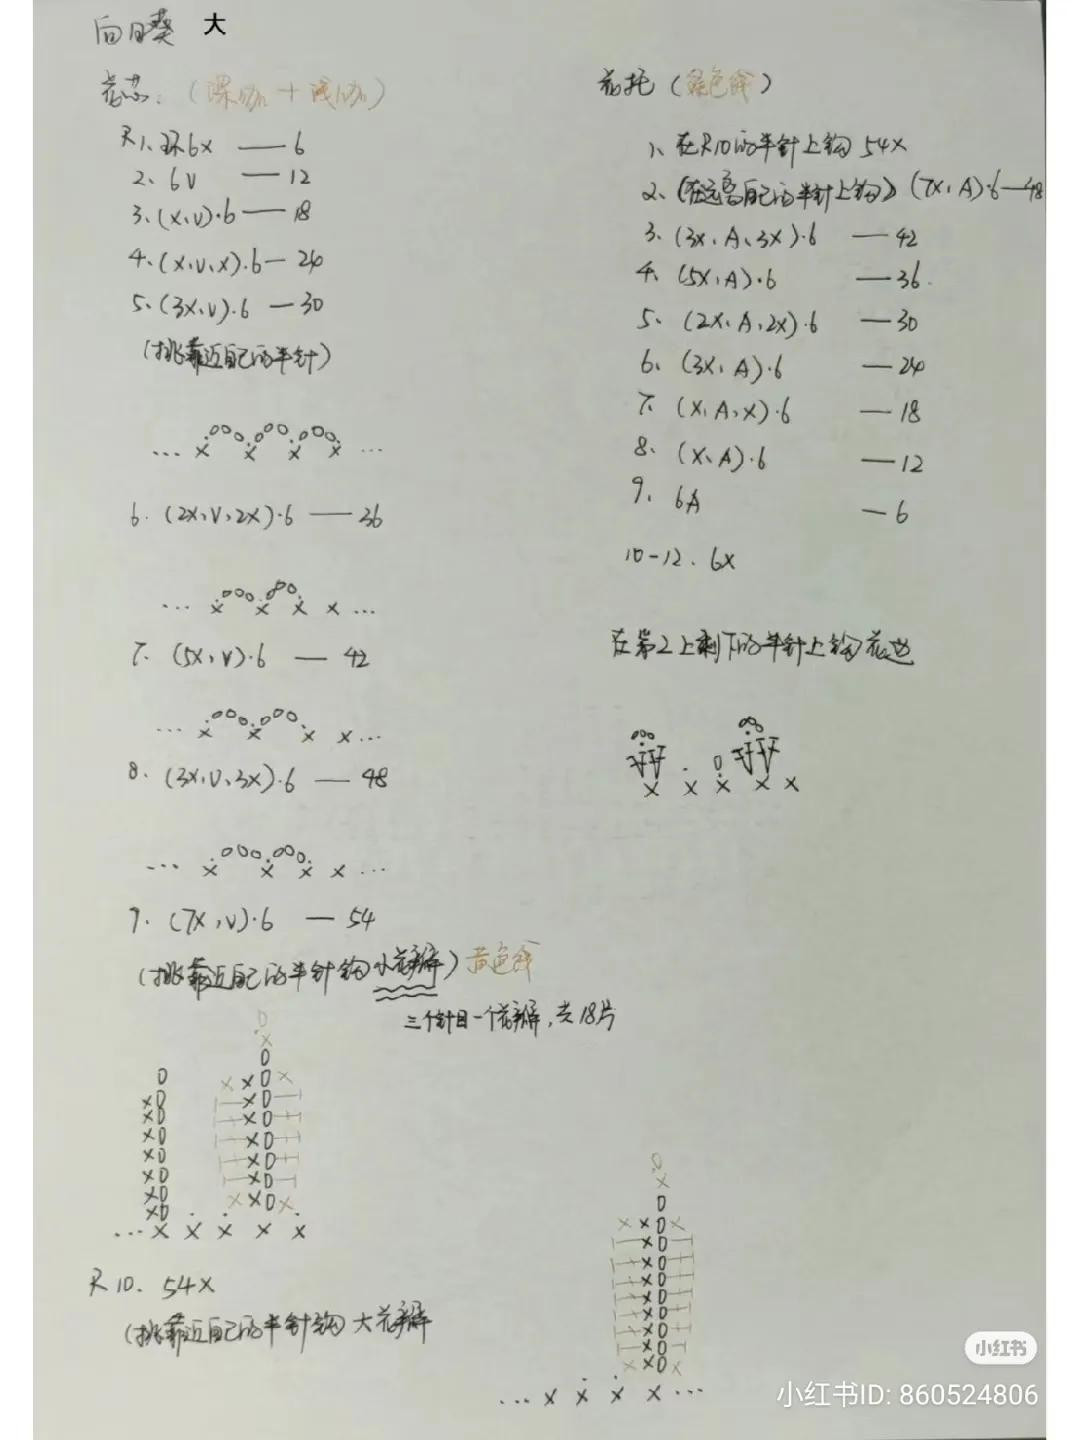 向日葵 大
花芯：（深咖＋浅咖）
R1、环6x —— 6
2、6V —— 12
3、(x,v)·6 —— 18
4、(x,v,x)·6 — 24
5、(3x,v)·6 — 30
(挑靠近自己的半针)
... x x x x ...
6. (2x,v,2x)·6 —— 36
... x x x x ...
7. (5x,v)·6 — 42
... x x x x ...
8. (3x,v,3x)·6 — 48
... x x x x ...
9. (7x,v)·6 — 54
(挑靠近自己的半针钩小花瓣) 黄色线
三个针目一个花瓣，共18片
... x x x x x
R10. 54x
(挑靠近自己的半针钩大花瓣
... x x x x ...
花托（绿色线）
1、在R10的半针上钩 54x
2、(在远离自己的半针上钩) (7x,A)·6 — 48
3、(3x,A,3x)·6 — 42
4、(5x,A)·6 — 36.
5、(2x,A,2x)·6 — 30
6、(3x,A)·6 — 24
7、(x,A,x)·6 — 18
8、(x,A)·6 — 12
9、6A — 6
10-12. 6x
在第2上剩下的半针上钩花边
x x x x x
小红书
小红书ID: 860524806